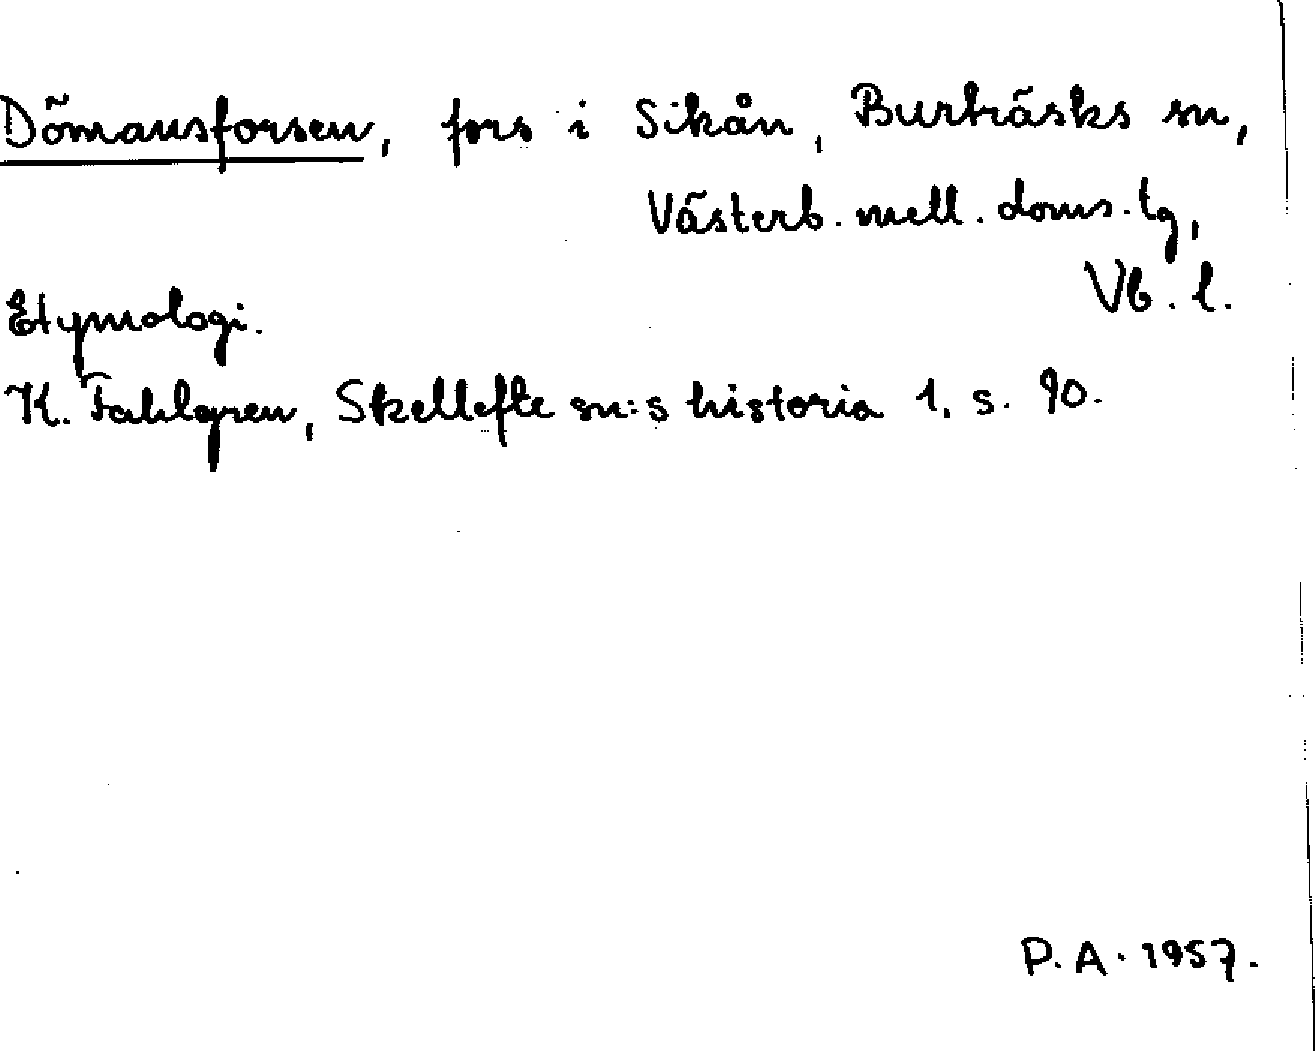 Dömansforsen, fors i Sikån, Burträsks sn,
Västerb. mell. doms. tg,
Vb. l.
Etymologi.
K. Fahlgren, Skellefte sn:s historia 1, s. 90.
P. A. 1957.